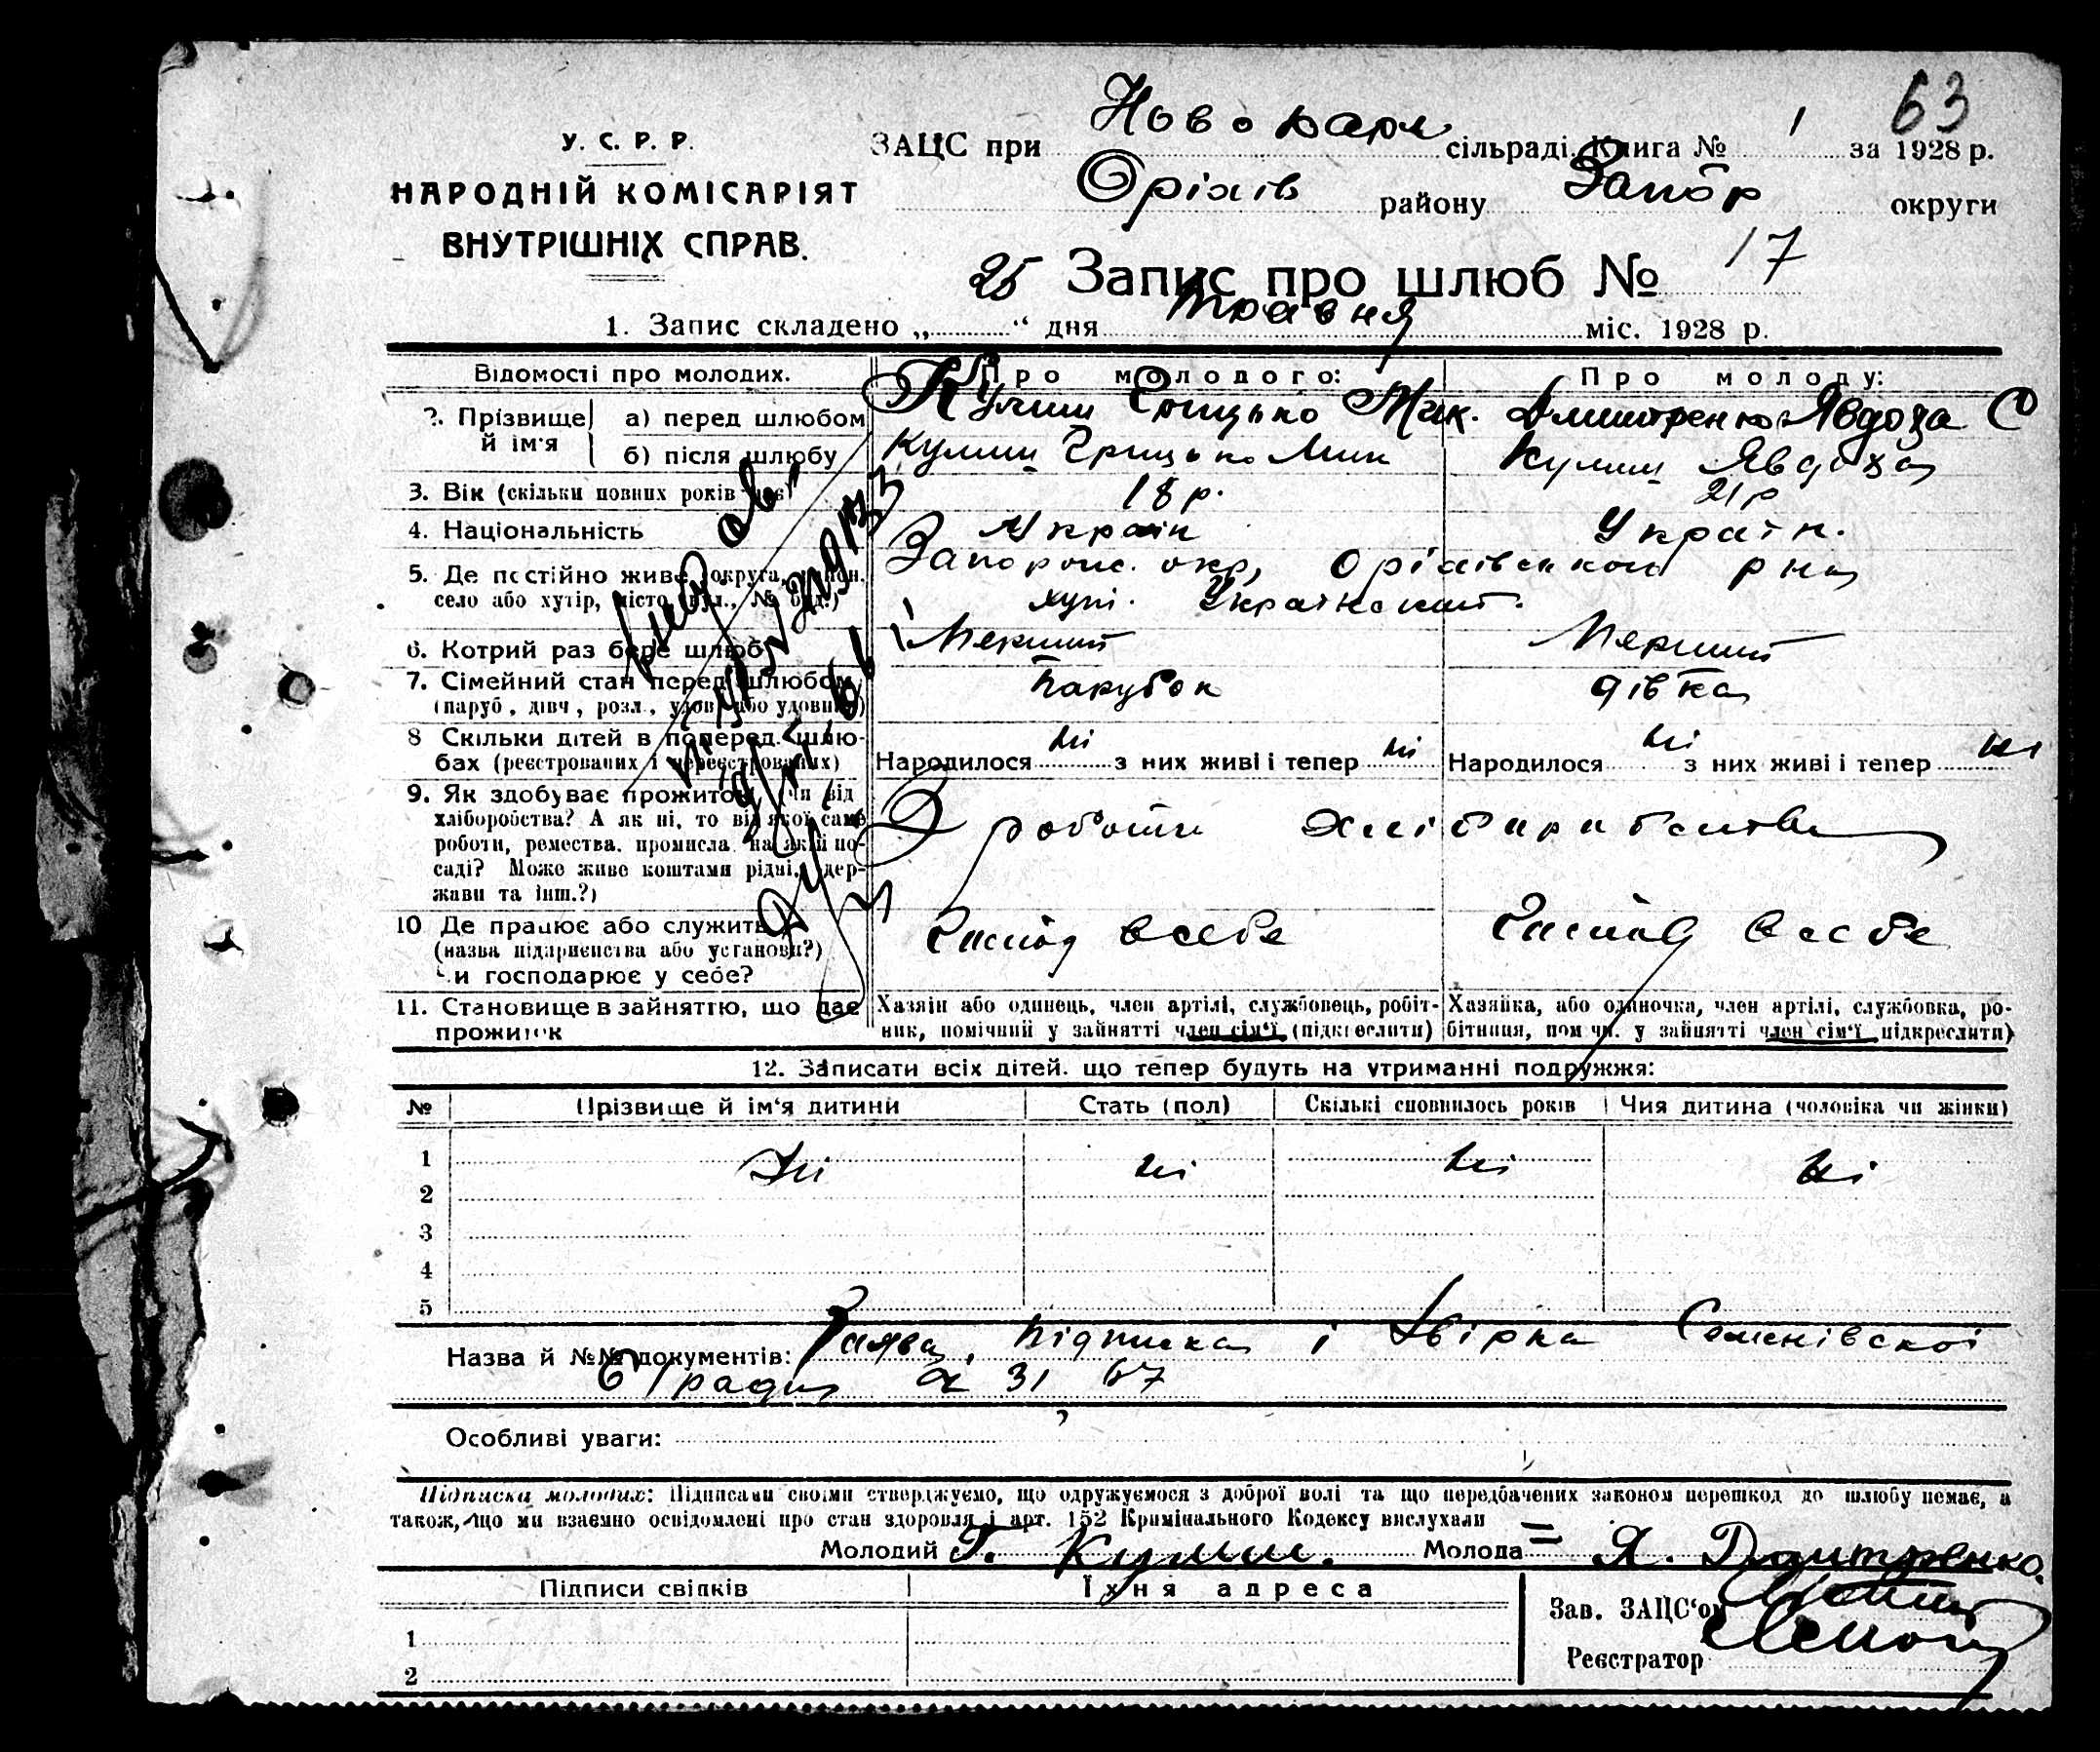 63
У. С. Р. Р.
НАРОДНІЙ КОМІСАРІЯТ
ВНУТРІШНІХ СПРАВ.
ЗАЦС при Новокарл сільраді. Книга № 1 за 1928 р.
Оріхів району Запор округи
Запис про шлюб № 17
1. Запис складено „ 25 “ дня травня міс. 1928 р.
Відомості про молодих. Про молодого: Про молоду:
2. Прізвище й ім'я а) перед шлюбом Кулиш Грицько Мик. Дмитренко Явдоха С
б) після шлюбу Кулиш Грицько Мик Кулиш Явдоха
3. Вік (скільки повних років має) 18 р. 21 р
4. Національність Україн Україн.
5. Де постійно живе (округа, район, Запорож. окр, Оріхівської р на
село або хутір, місто, вул., № буд.) хуті. Український.
6. Котрий раз бере шлюб Перший Перший
7. Сімейний стан перед шлюбом Парубок дівка
(паруб., дівч., розл., удов. або удовиця)
8 Скільки дітей в поперед. шлю-
бах (реєстрованих і нереєстрованих) Народилося ні з них живі і тепер ні Народилося ні з них живі і тепер ні
9. Як здобуває прожиток, (чи від
хліборобства? А як ні, то від якої саме
роботи, ремества, промисла, на якій по-
саді? Може живе коштами рідні, дер-
жави та інш.?)
З роботи
10 Де працює або служить
(назва підприємства або установи?)
Чи господарює у себе?
Господ всебе Господ всебе
11. Становище в зайняттю, що дає Хазяїн або одинець, член артілі, службовець, робіт- Хазяйка, або одиночка, член артілі, службовка, ро-
прожиток ник, помічний у зайнятті член сім'ї (підкреслити) бітниця, пом чн. у зайнятті член сім'ї підкреслити)
12. Записати всіх дітей. що тепер будуть на утриманні подружжя:
№ Прізвище й ім'я дитини Стать (пол) Скількі сповнилось років Чия дитина (чоловіка чи жінки)
1 ні ні ні ні
2
3
4
5
Назва й №№ документів: Заява, підписка і Звірка Семенівської
С/ради 31 67
Особливі уваги:
Підписка молодих: Підписами своїми стверджуємо, що одружуємося з доброї волі та що передбачених законом перешкод до шлюбу немає, а
також, що ми взаємно освідомлені про стан здоровля і арт. 152 Кримінального Кодексу вислухали
Молодий Г. Кулиш. Молода = Я. Дмитренко.
Підписи свідків Їхня адреса
Зав. ЗАЦС'ом
1
Реєстратор
2